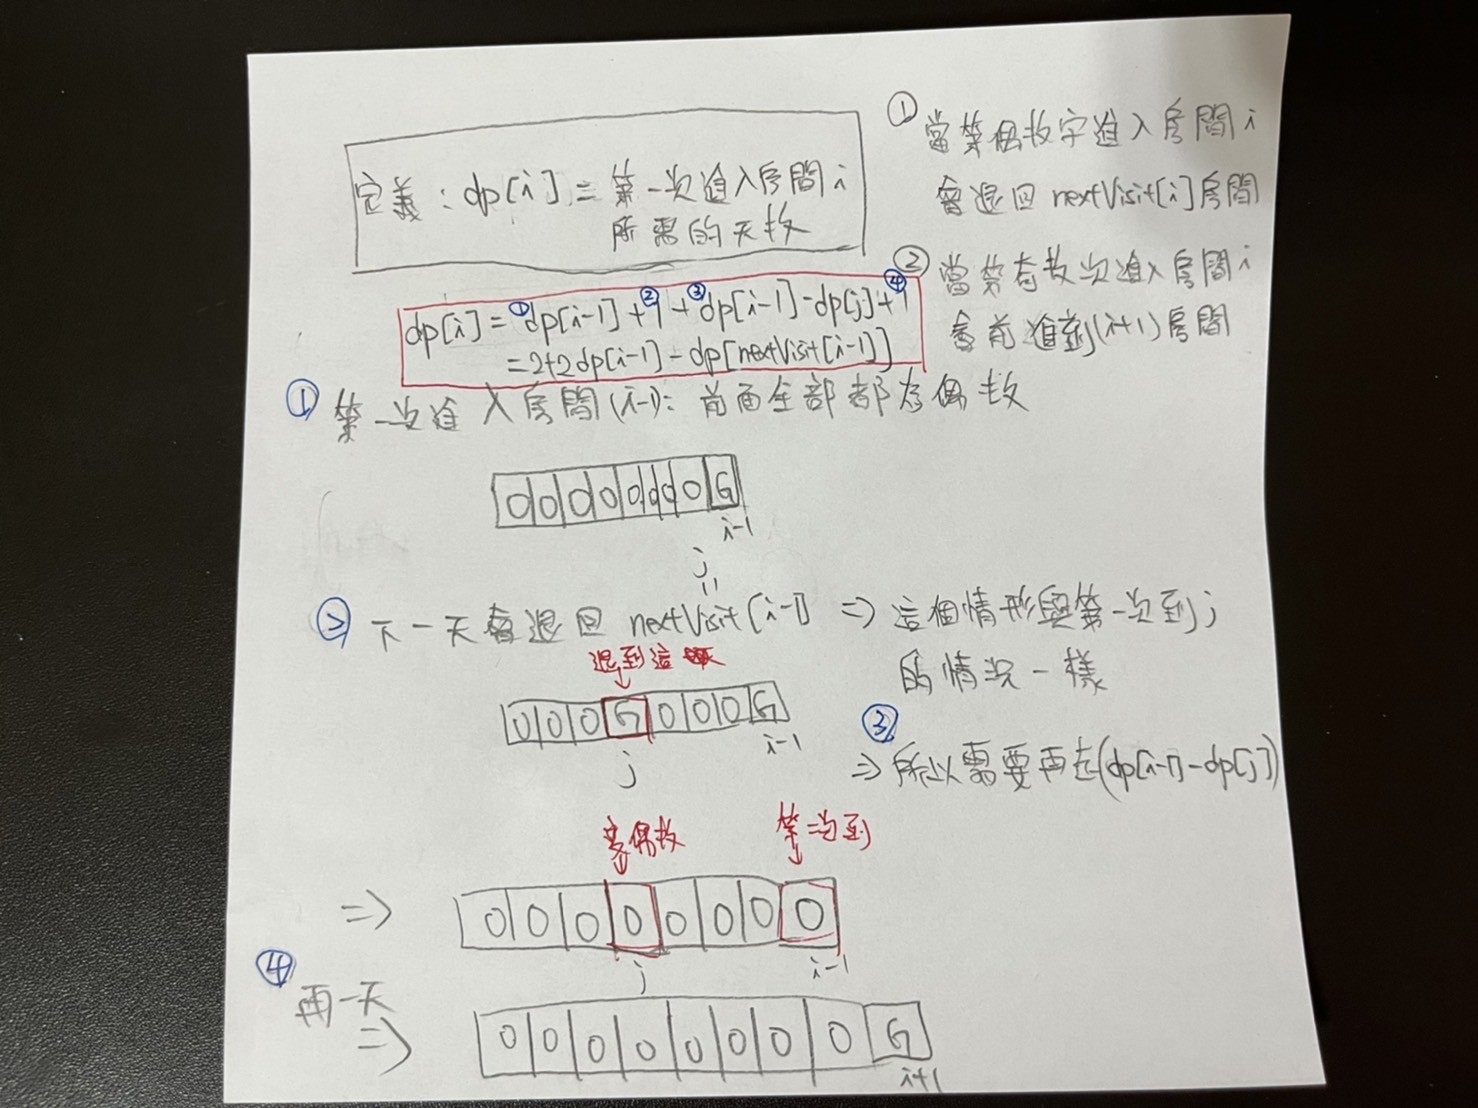 定義：dp[i] = 第一次進入房間i
所需的天數
① 當第偶數字進入房間i
會退回 nextVisit[i]房間
② 當第奇數次進入房間i
會前進到(i+1)房間
dp[i] = ①dp[i-1] + ②1 + ③dp[i-1] - dp[j] + ④1
= 2+2dp[i-1] - dp[nextVisit[i-1]]
① 第一次進入房間(i-1)：前面全部都為偶數
0 0 0 0 0 0 0 0 G
i-1
j
=
② 下一天會退回 nextVisit[i-1] => 這個情形與第一次到j
的情況一樣
退到這
0 0 0 G 0 0 0 G
j
i-1
③
=> 所以需要再走(dp[i-1]-dp[j])
變偶數
第二次到
=> 0 0 0 0 0 0 0 0
j
i-1
④ 再一天
=> 0 0 0 0 0 0 0 0 G
i+1